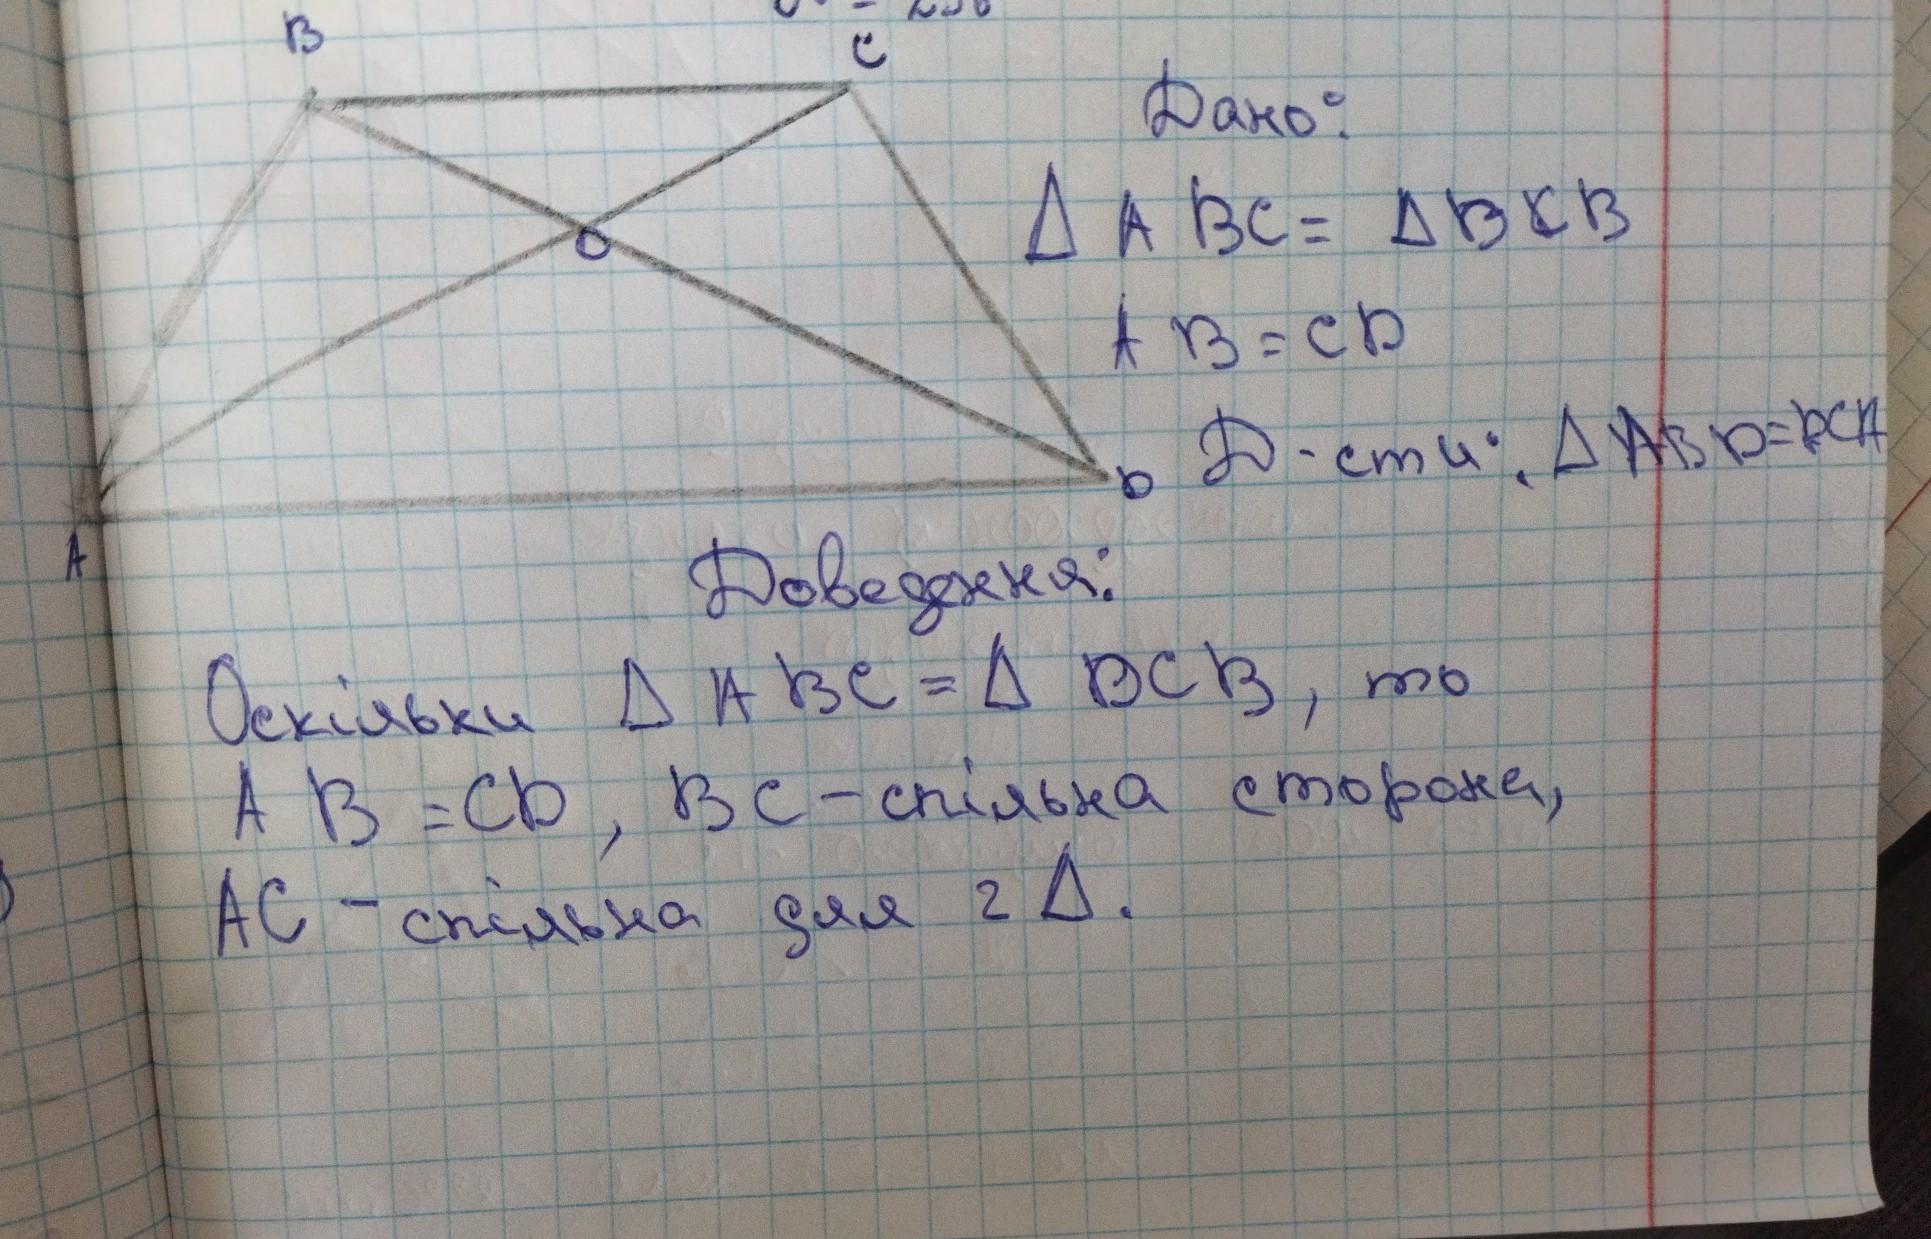 B
C
O
A
D
Дано:
Δ ABC = Δ BCB
AB = CD
Д-сти: Δ ABD = DCA
Доведення:
Оскільки Δ ABC = Δ DCB, то
AB = CD, BC - спільна сторона,
AC - спільна для 2 Δ.